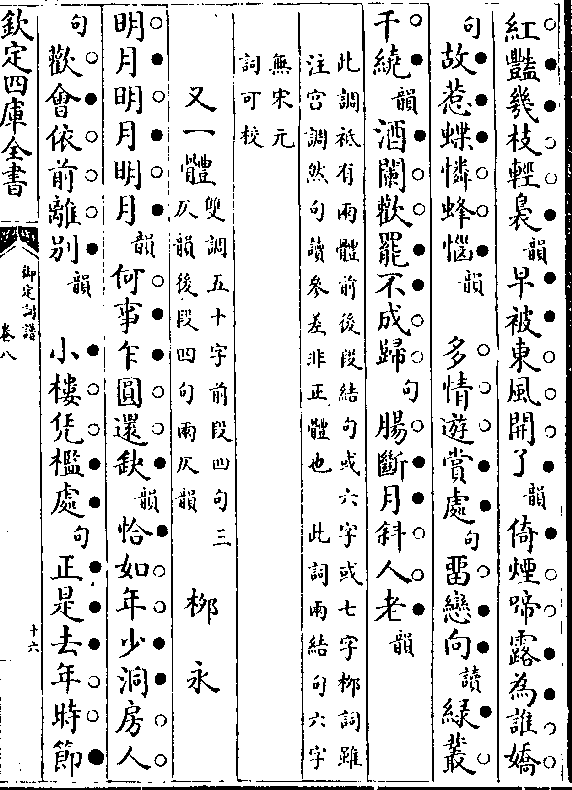 紅豔幾枝輕裊韻早被東風開了韻倚煙啼露為誰嬌
句故惹蝶憐蜂惱韻　多情遊賞處句畱戀向讀綠叢
千繞韻酒闌歡罷不成歸句腸斷月斜人老韻
此調祗有兩體前後段結句或六字或七字柳詞雖
注宮調然句讀參差非正體也　此詞兩結句六字
無宋元
詞可校
又一體雙調五十字前段四句三
仄韻後段四句兩仄韻　柳永
明月明月明月韻何事乍圓還缺韻恰如年少洞房人
句歡會依前離别韻　小樓凭檻處句正是去年時節
欽定四庫全書
御定詞譜
卷八
十六